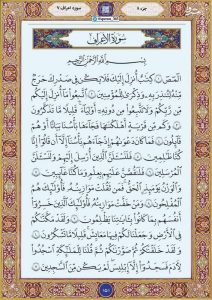 جزء ۸
سوره اعراف ۷
سُورَةُ الأَعْرَافِ
بِسْمِ اللَّهِ الرَّحْمَٰنِ الرَّحِيمِ
الٓمٓصٓ ۝ كِتَابٌ أُنزِلَ إِلَيْكَ فَلَا يَكُن فِي صَدْرِكَ حَرَجٌ
مِّنْهُ لِتُنذِرَ بِهِ وَذِكْرَىٰ لِلْمُؤْمِنِينَ ۝ اتَّبِعُوا مَا أُنزِلَ إِلَيْكُم
مِّن رَّبِّكُمْ وَلَا تَتَّبِعُوا مِن دُونِهِ أَوْلِيَاءَ قَلِيلًا مَّا تَذَكَّرُونَ
۝ وَكَم مِّن قَرْيَةٍ أَهْلَكْنَاهَا فَجَاءَهَا بَأْسُنَا بَيَاتًا أَوْ هُمْ
قَائِلُونَ ۝ فَمَا كَانَ دَعْوَاهُمْ إِذْ جَاءَهُم بَأْسُنَا إِلَّا أَن قَالُوا إِنَّا
كُنَّا ظَالِمِينَ ۝ فَلَنَسْأَلَنَّ الَّذِينَ أُرْسِلَ إِلَيْهِمْ وَلَنَسْأَلَنَّ
الْمُرْسَلِينَ ۝ فَلَنَقُصَّنَّ عَلَيْهِم بِعِلْمٍ وَمَا كُنَّا غَائِبِينَ ۝
وَالْوَزْنُ يَوْمَئِذٍ الْحَقُّ فَمَن ثَقُلَتْ مَوَازِينُهُ فَأُولَٰئِكَ هُمُ
الْمُفْلِحُونَ ۝ وَمَنْ خَفَّتْ مَوَازِينُهُ فَأُولَٰئِكَ الَّذِينَ خَسِرُوا
أَنفُسَهُم بِمَا كَانُوا بِآيَاتِنَا يَظْلِمُونَ ۝ وَلَقَدْ مَكَّنَّاكُمْ
فِي الْأَرْضِ وَجَعَلْنَا لَكُمْ فِيهَا مَعَايِشَ قَلِيلًا مَّا تَشْكُرُونَ ۝
وَلَقَدْ خَلَقْنَاكُمْ ثُمَّ صَوَّرْنَاكُمْ ثُمَّ قُلْنَا لِلْمَلَائِكَةِ اسْجُدُوا
لِآدَمَ فَسَجَدُوا إِلَّا إِبْلِيسَ لَمْ يَكُن مِّنَ السَّاجِدِينَ ۝
۱۵۱